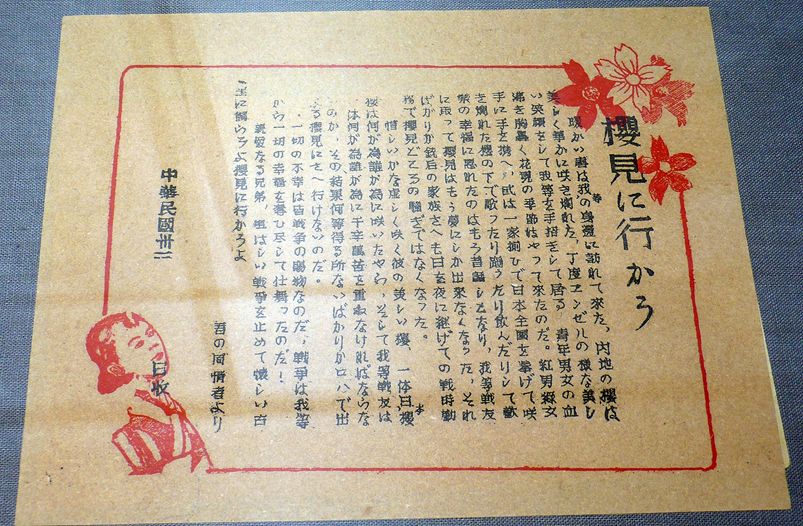 櫻見に行かう
暖かい春は我の身邊に訪れて來た、内地の櫻は
美しく華かに咲き爛れた、丁度エンゼルの様な美し
い笑顔をして我等を手招きして居る、青年男女の血
潮を胸轟く花見の季節はやって來たのだ。紅男緑女
手に手を携へ、或は一家揃ひで日本全國を挙げて咲
き爛れた櫻の下で歌ったり踊ったり飲んだりして歡
樂の幸福に恵れたのはもう昔話しとなり、我等戦友
に取って櫻見はもう夢にしか出來なくなった、それ
ばかりか銃后の家族さへも日を夜に継げての戦時勤
務で櫻見どころの騒ぎではなくなった。
惜しいかな虚しく咲く彼の美しい櫻、一体日本
櫻は何が為誰が為に咲いたやら、そして我等戦友は
一体何が為誰が為に千辛萬苦を重ねなければならな
いのか、その結果何等得る所ないばかりかロハで出
來る櫻見にさへ行けないのだ。
一切の不幸は皆戦争の賜物なのだ、戦爭は我等
から一切の幸福を奪ひ尽して仕舞ったのだ！
親愛なる兄弟、忌はしい戦爭を止めて懐しい古
里に歸らうよ櫻見に行かうよ
君の同情者より
中華民國卅三